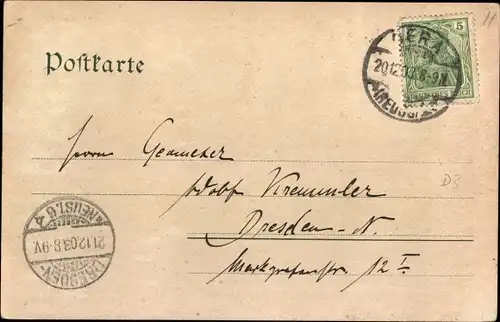 Postkarte
5
GERA
20.12.03.8-9N.
(REUSS)
11
Herrn Geometer
Adolf Kremmler
D3
Dresden-N.
Markgrafenstr. 12 I.
NEUST. 6
21.12.03.8-9V.
DRESDEN-